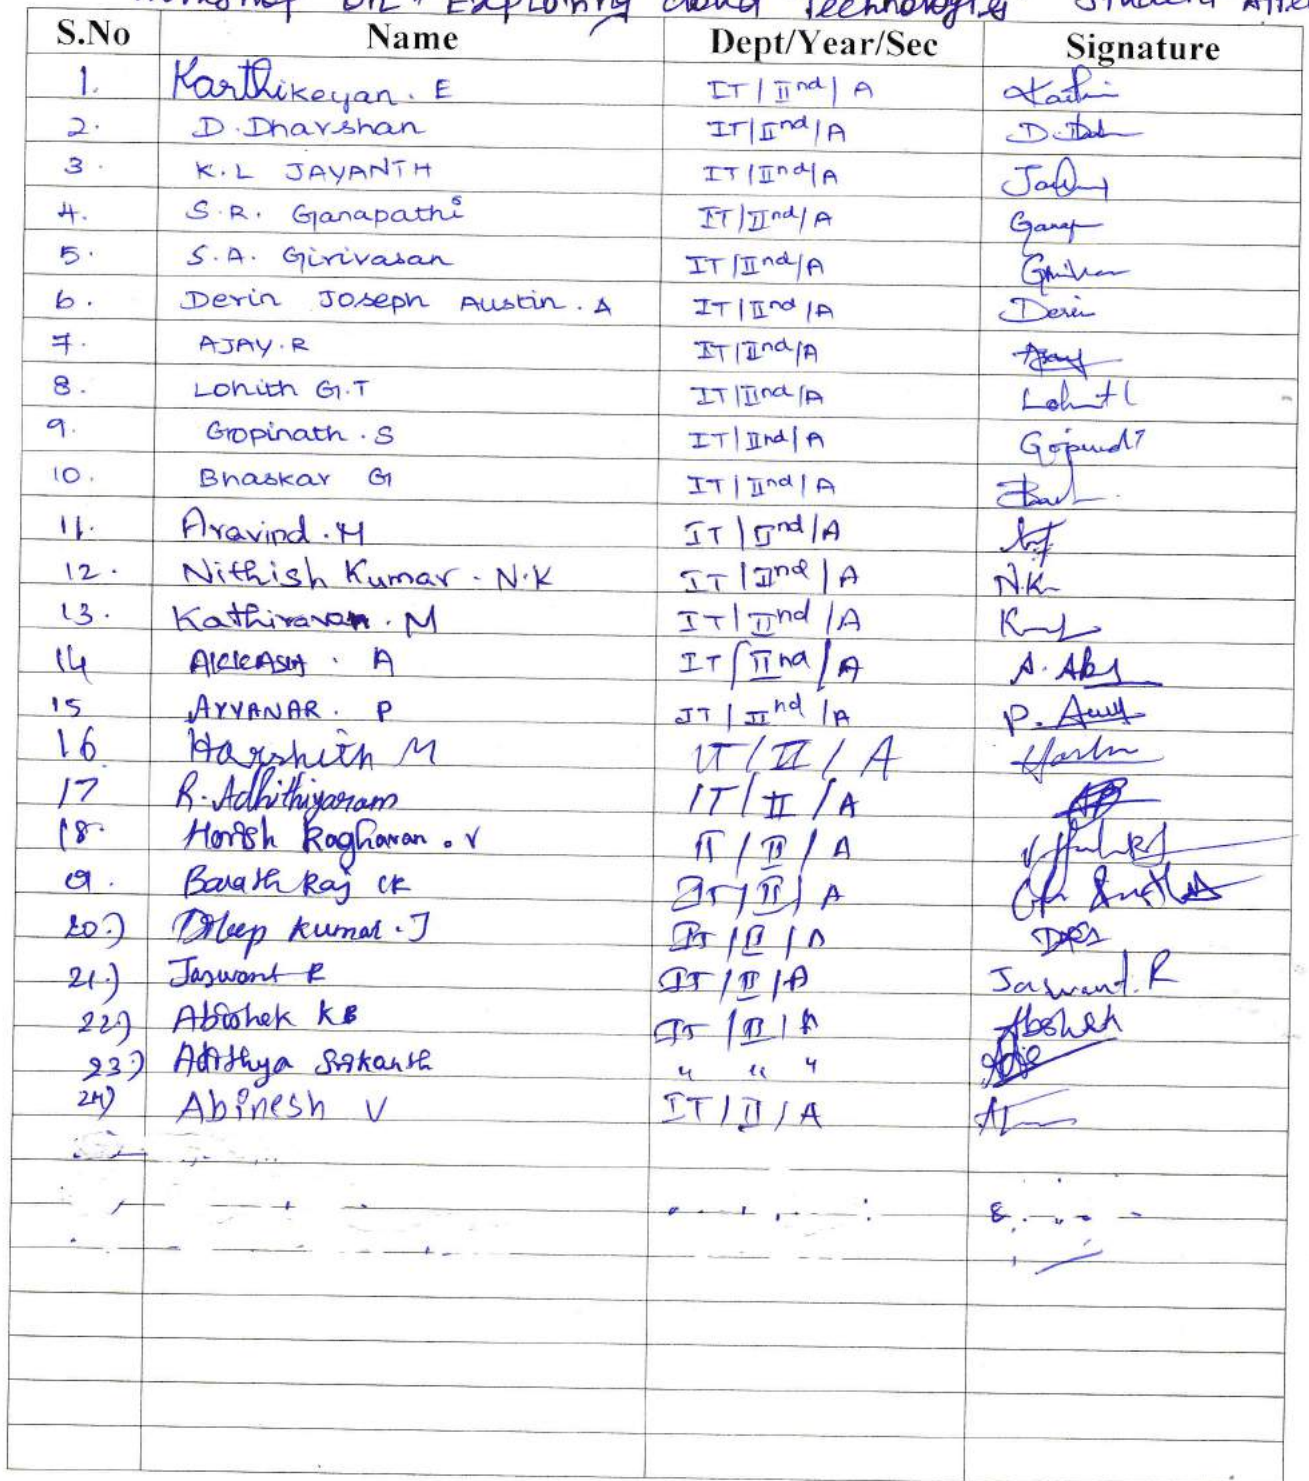 Workshop on "Exploring Cloud Technologies" Student Atte
S.No Name Dept/Year/Sec Signature
1. Karthikeyan. E IT / IInd / A Karthi
2. D. Dharshan IT/IInd/A D.
3. K.L JAYANTH IT/IInd/A
4. S.R. Ganapathi IT/IInd/A Ganap
5. S.A. Girivasan IT/IInd/A
6. Derin Joseph Austin. A IT/IInd/A Derin
7. AJAY.R IT/IInd/A
8. Lohith G.T IT/IInd/A Lohith
9. Gopinath.S IT/IInd/A
10. Bhaskar G IT/IInd/A
11. Aravind.M IT/IInd/A
12. Nithish Kumar. N.K IT/IInd/A N.K
13. Kathiravan. M IT/IInd/A
14 A IT/IInd/A A.
15 AYYANAR. P IT/IInd/A P.
16 Harshith M IT/II/A
17 R. Adhithiyaram IT/II/A
18. Harish Raghavan. V IT/II/A
9. Barath Raj CK IT/II/A
20.) Dileep Kumar. J IT/II/A
21.) Jaswant R IT/II/A Jaswant. R
22) Abishek KB IT/II/A Abishek
23) Adithya Srikanth " " "
24) Abinesh V IT/II/A